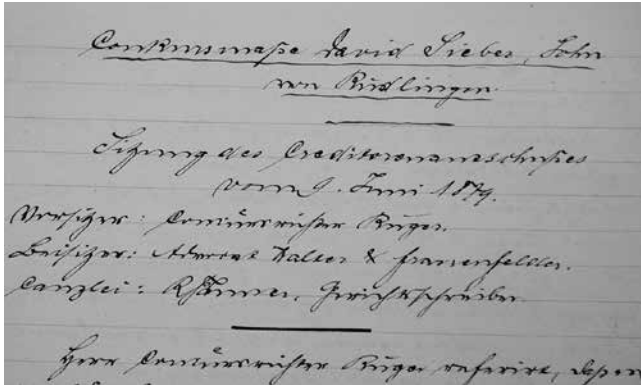 Conkursmaße David Sieber, Sohn
von Rüdlingen.
Sitzung des Creditorenausschußes
vom 9. Juni 1879.
Vorsitzer: Concursrichter Ruger.
Beisitzer: Advocat Walter & Frauenfelder.
Canzlei: Gerichtsschreiber.
Herr Concursrichter Ruger referirt, daß er